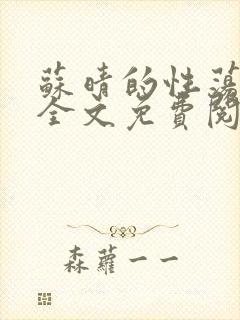 蘇晴的性蕩
全文免費閱
森蘿一一